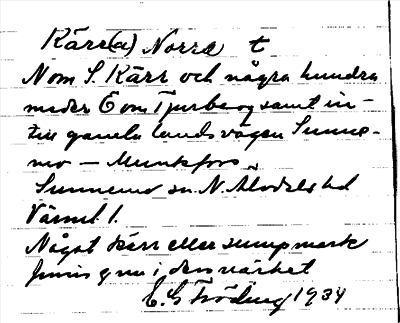 Kärr(a) Norra t
Nom S. Kärr och några hundra
meder E om Tjurberg samt in-
till gamla landsvägen Sunne-
mo - Munkfors
Sunnemo sn. N. Älvdals hd
Värml. l.
Något kärr eller sumpmark
finns g nu i dess närhet
E. G Fröding 1934